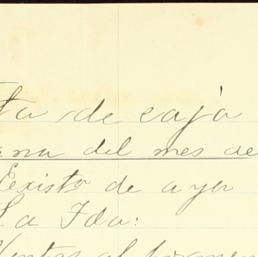 ta de caja
ana del mes de
Existª de ayer
La Ida:
Ventas al